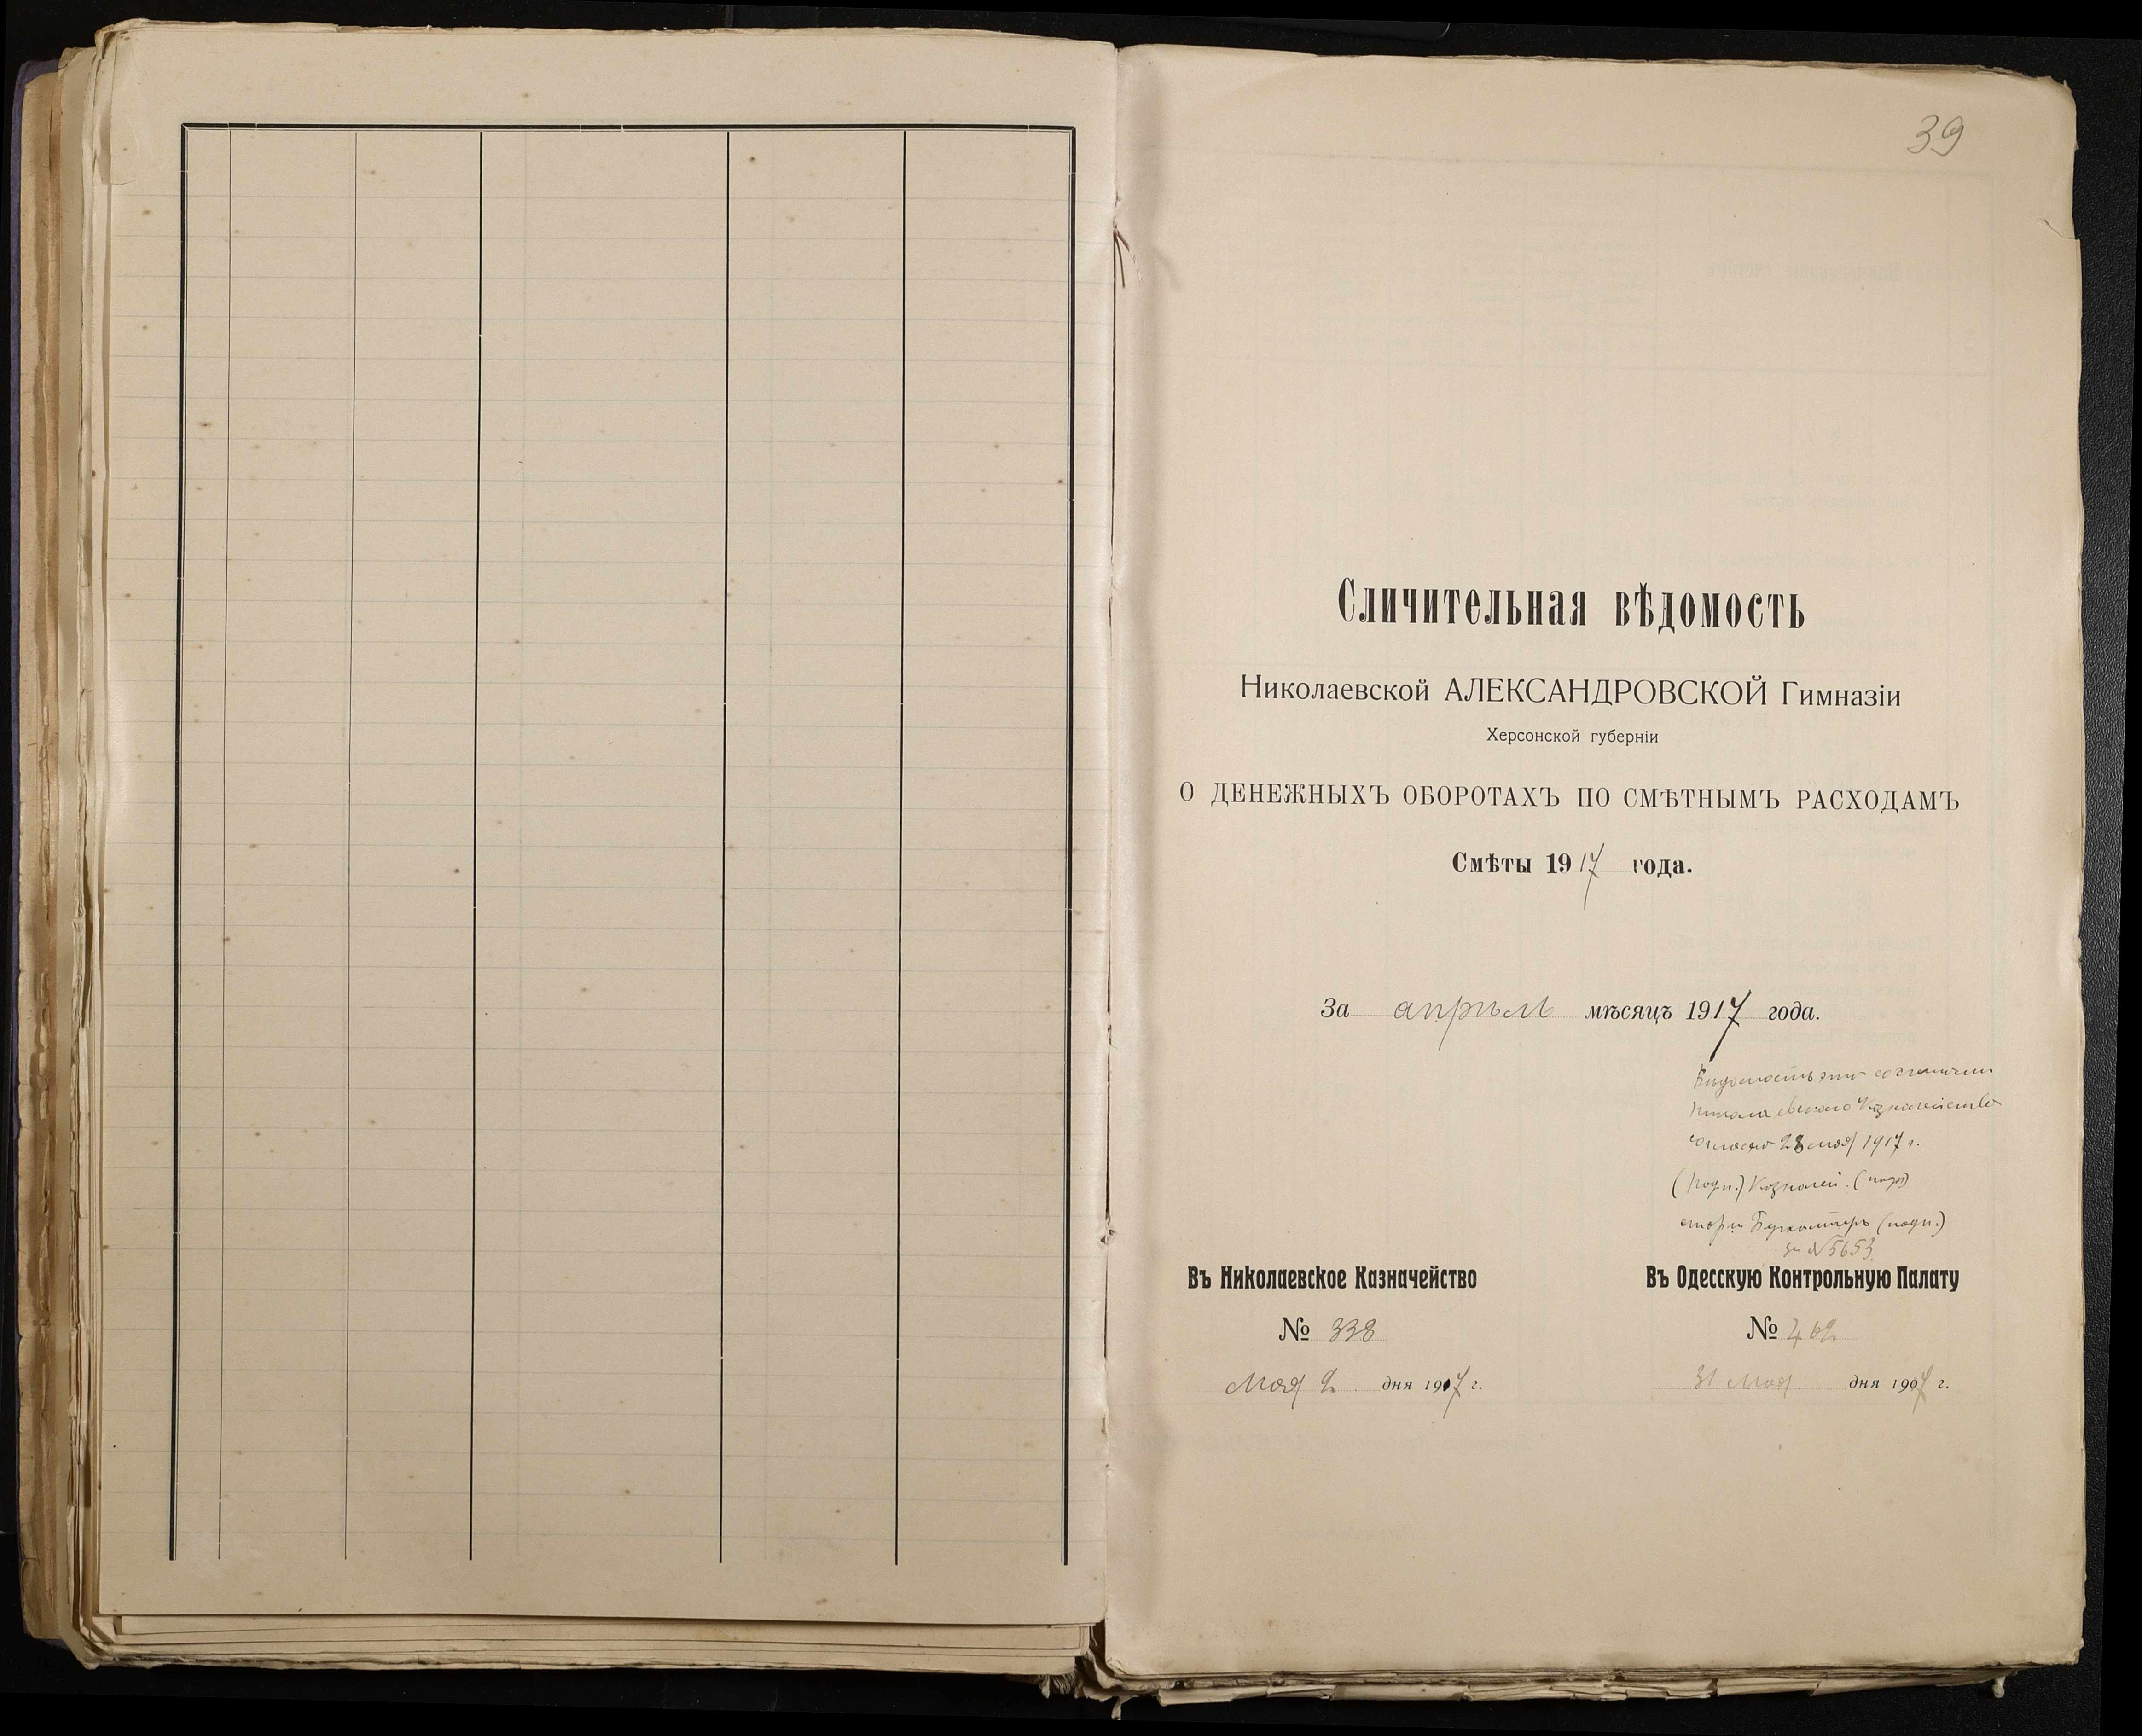 39
Сличительная вѣдомость
Николаевской АЛЕКСАНДРОВСКОЙ Гимназіи
Херсонской губерніи
О ДЕНЕЖНЫХЪ ОБОРОТАХЪ ПО СМѢТНЫМЪ РАСХОДАМЪ
Смѣты 1917 года.
За апрѣль мѣсяцъ 1917 года.
Вѣдомость эта
Николаевскаго Казначейства
28 мая 1917 г.
(подп.) Казначей (подп)
Бухгалтеръ (подп.)
за № 5653.
Въ Николаевское Казначейство
№ 338
Мая 2 дня 1917 г.
Въ Одесскую Контрольную Палату
№ 462
31 Мая дня 1907 г.